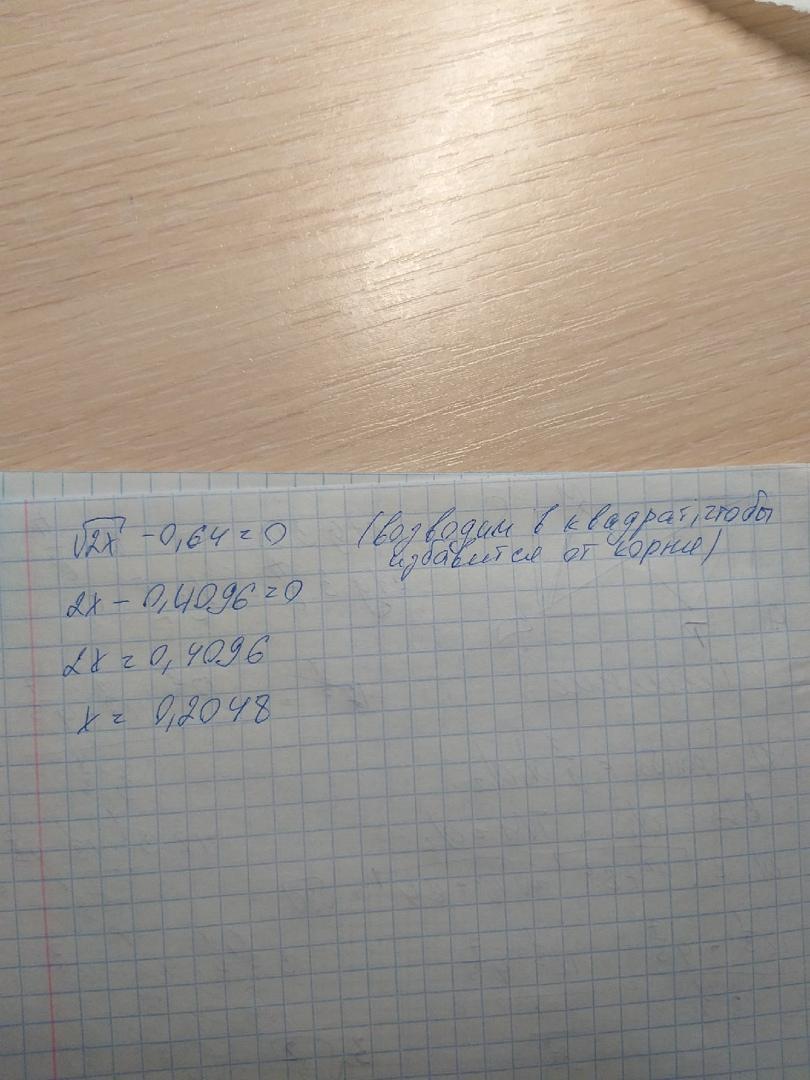 √2x - 0,64 = 0 (возводим в квадрат, чтобы
избавится от корня)
2x - 0,4096 = 0
2x = 0,4096
x = 0,2048